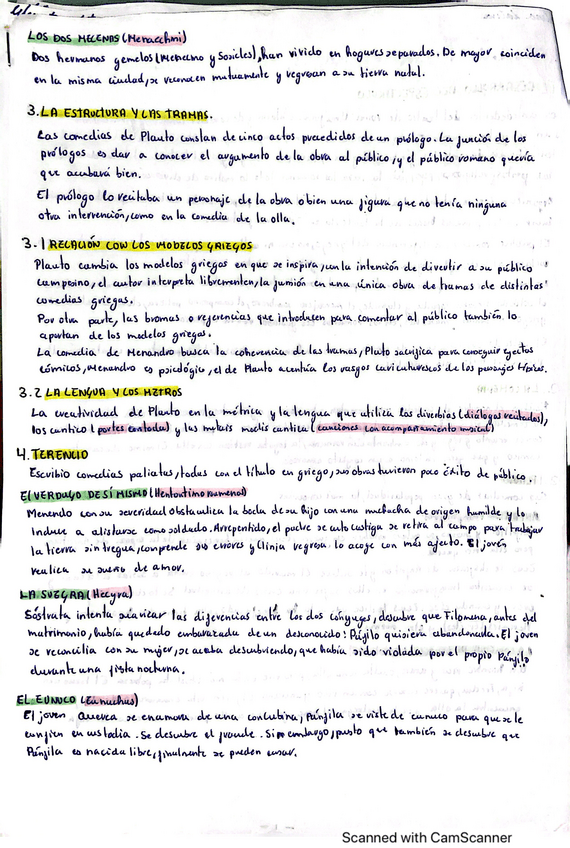 LOS DOS MECENAS (Meracchini)
Dos hermanos gemelos (Mencino y Sosicles), han vivido en hogares separados. De mayor coinciden
en la misma ciudad, se reconocen mutuamente y regresan a su tierra natal.
3. LA ESTRUCTURA Y LAS TRAMAS.
Las comedias de Plauto constan de cinco actos precedidos de un prólogo. La función de los
prólogos es dar a conocer el argumento de la obra al público, y el público romano quería
que acabará bien.
El prólogo lo recitaba un personaje de la obra o bien una figura que no tenía ninguna
otra intervención, como en la comedia de la olla.
3.1 RELACIÓN CON LOS MODELOS GRIEGOS
Plauto cambia los modelos griegos en que se inspira, con la intención de divertir a su público
campesino, el autor interpreta libremente, la fusión en una única obra de tramas de distintas
comedias griegas.
Por otra parte, las bromas o referencias que introducen para comentar al público también lo
apartan de los modelos griegos.
La comedia de Menandro busca la coherencia de las tramas, Pluto sacrifica para conseguir efectos
cómicos, Menandro es psicológico, el de Plauto acentúa los rasgos caricaturescos de los personajes
3.2 LA LENGUA Y LOS METROS
La creatividad de Plauto en la métrica y la lengua que utiliza los diverbios (diálogos recitados),
los cantica (partes cantadas) y las mutais modis cantica (canciones con acompañamiento musical)
4. TERENCIO
Escribio comedias paliatas, todas con el título en griego, sus obras tuvieron poco éxito de público.
El VERDUGO DE SÍ MISMO (Hentontimorumenos)
Menendo con su severidad obstaculiza la boda de su hijo con una muchacha de origen humilde y lo
induce a alistarse como soldado. Arrepentido, el padre se autocastiga se retira al campo para trabajar
la tierra sin tregua, comprende sus errores y Clinia regresa lo acoge con más afecto. El joven
realiza su sueño de amor.
LA SUEGRA (Hecyra)
Sóstrata intenta suavizar las diferencias entre los dos cónyuges, descubre que Filomena, antes del
matrimonio, había quedado embarazada de un desconocido. Pánfilo quisiera abandonarla. El joven
se reconcilia con su mujer, se acaba descubriendo, que había sido violada por el propio Pánfilo
durante una fiesta nocturna.
EL EUNUCO (Eunuchus)
El joven se enamora de una concubina, Pánfila se viste de eunuco para que se le
confien en custodia. Se descubre el fraude. Sin embargo, puesto que también se descubre que
Pánfila es nacida libre, finalmente se pueden casar.
Scanned with CamScanner